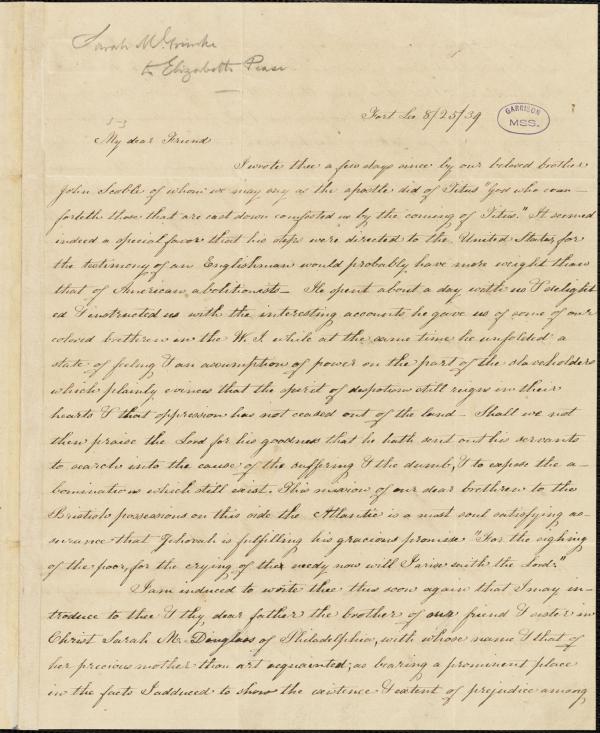 Sarah M. Grimke
to Elizabeth Pease
Fort Lee 8/25/39
GARRISON
MSS.
My dear Friend
I wrote thee a few days since by our beloved brother
John Scoble of whom we may say as the apostle did of Titus "God who com-
forteth those that are cast down comforted us by the coming of Titus." It seemed
indeed a special favor that his steps were directed to the United States, for
the testimony of an Englishman would probably have more weight than
that of American abolitionists - He spent about a day with us & delight
ed & instructed us with the interesting accounts he gave us of some of our
colored brethren in the W. I. while at the same time he unfolded a
state of feeling & an assumption of power on the part of the slaveholders
which plainly evinces that the spirit of despotism still reigns in their
hearts & that oppression has not ceased out of the land - Shall we not
then praise the Lord for his goodness that he hath sent out his servants
to search into the cause of the suffering & the dumb, & to expose the a-
bominations which still exist. This mission of our dear brethren to the
British possessions on this side the Atlantic is a most soul satisfying as-
surance that Jehovah is fulfilling his gracious promise "For the sighing
of the poor, for the crying of the needy now will I arise saith the Lord."
I am induced to write thee thus soon again that I may in-
troduce to thee & thy dear father the brother of our friend & sister in
Christ Sarah M. Douglass of Philadelphia, with whose name & that of
her precious mother thou art acquainted; as bearing a prominent place
in the facts I adduced to show the existence & extent of prejudice among